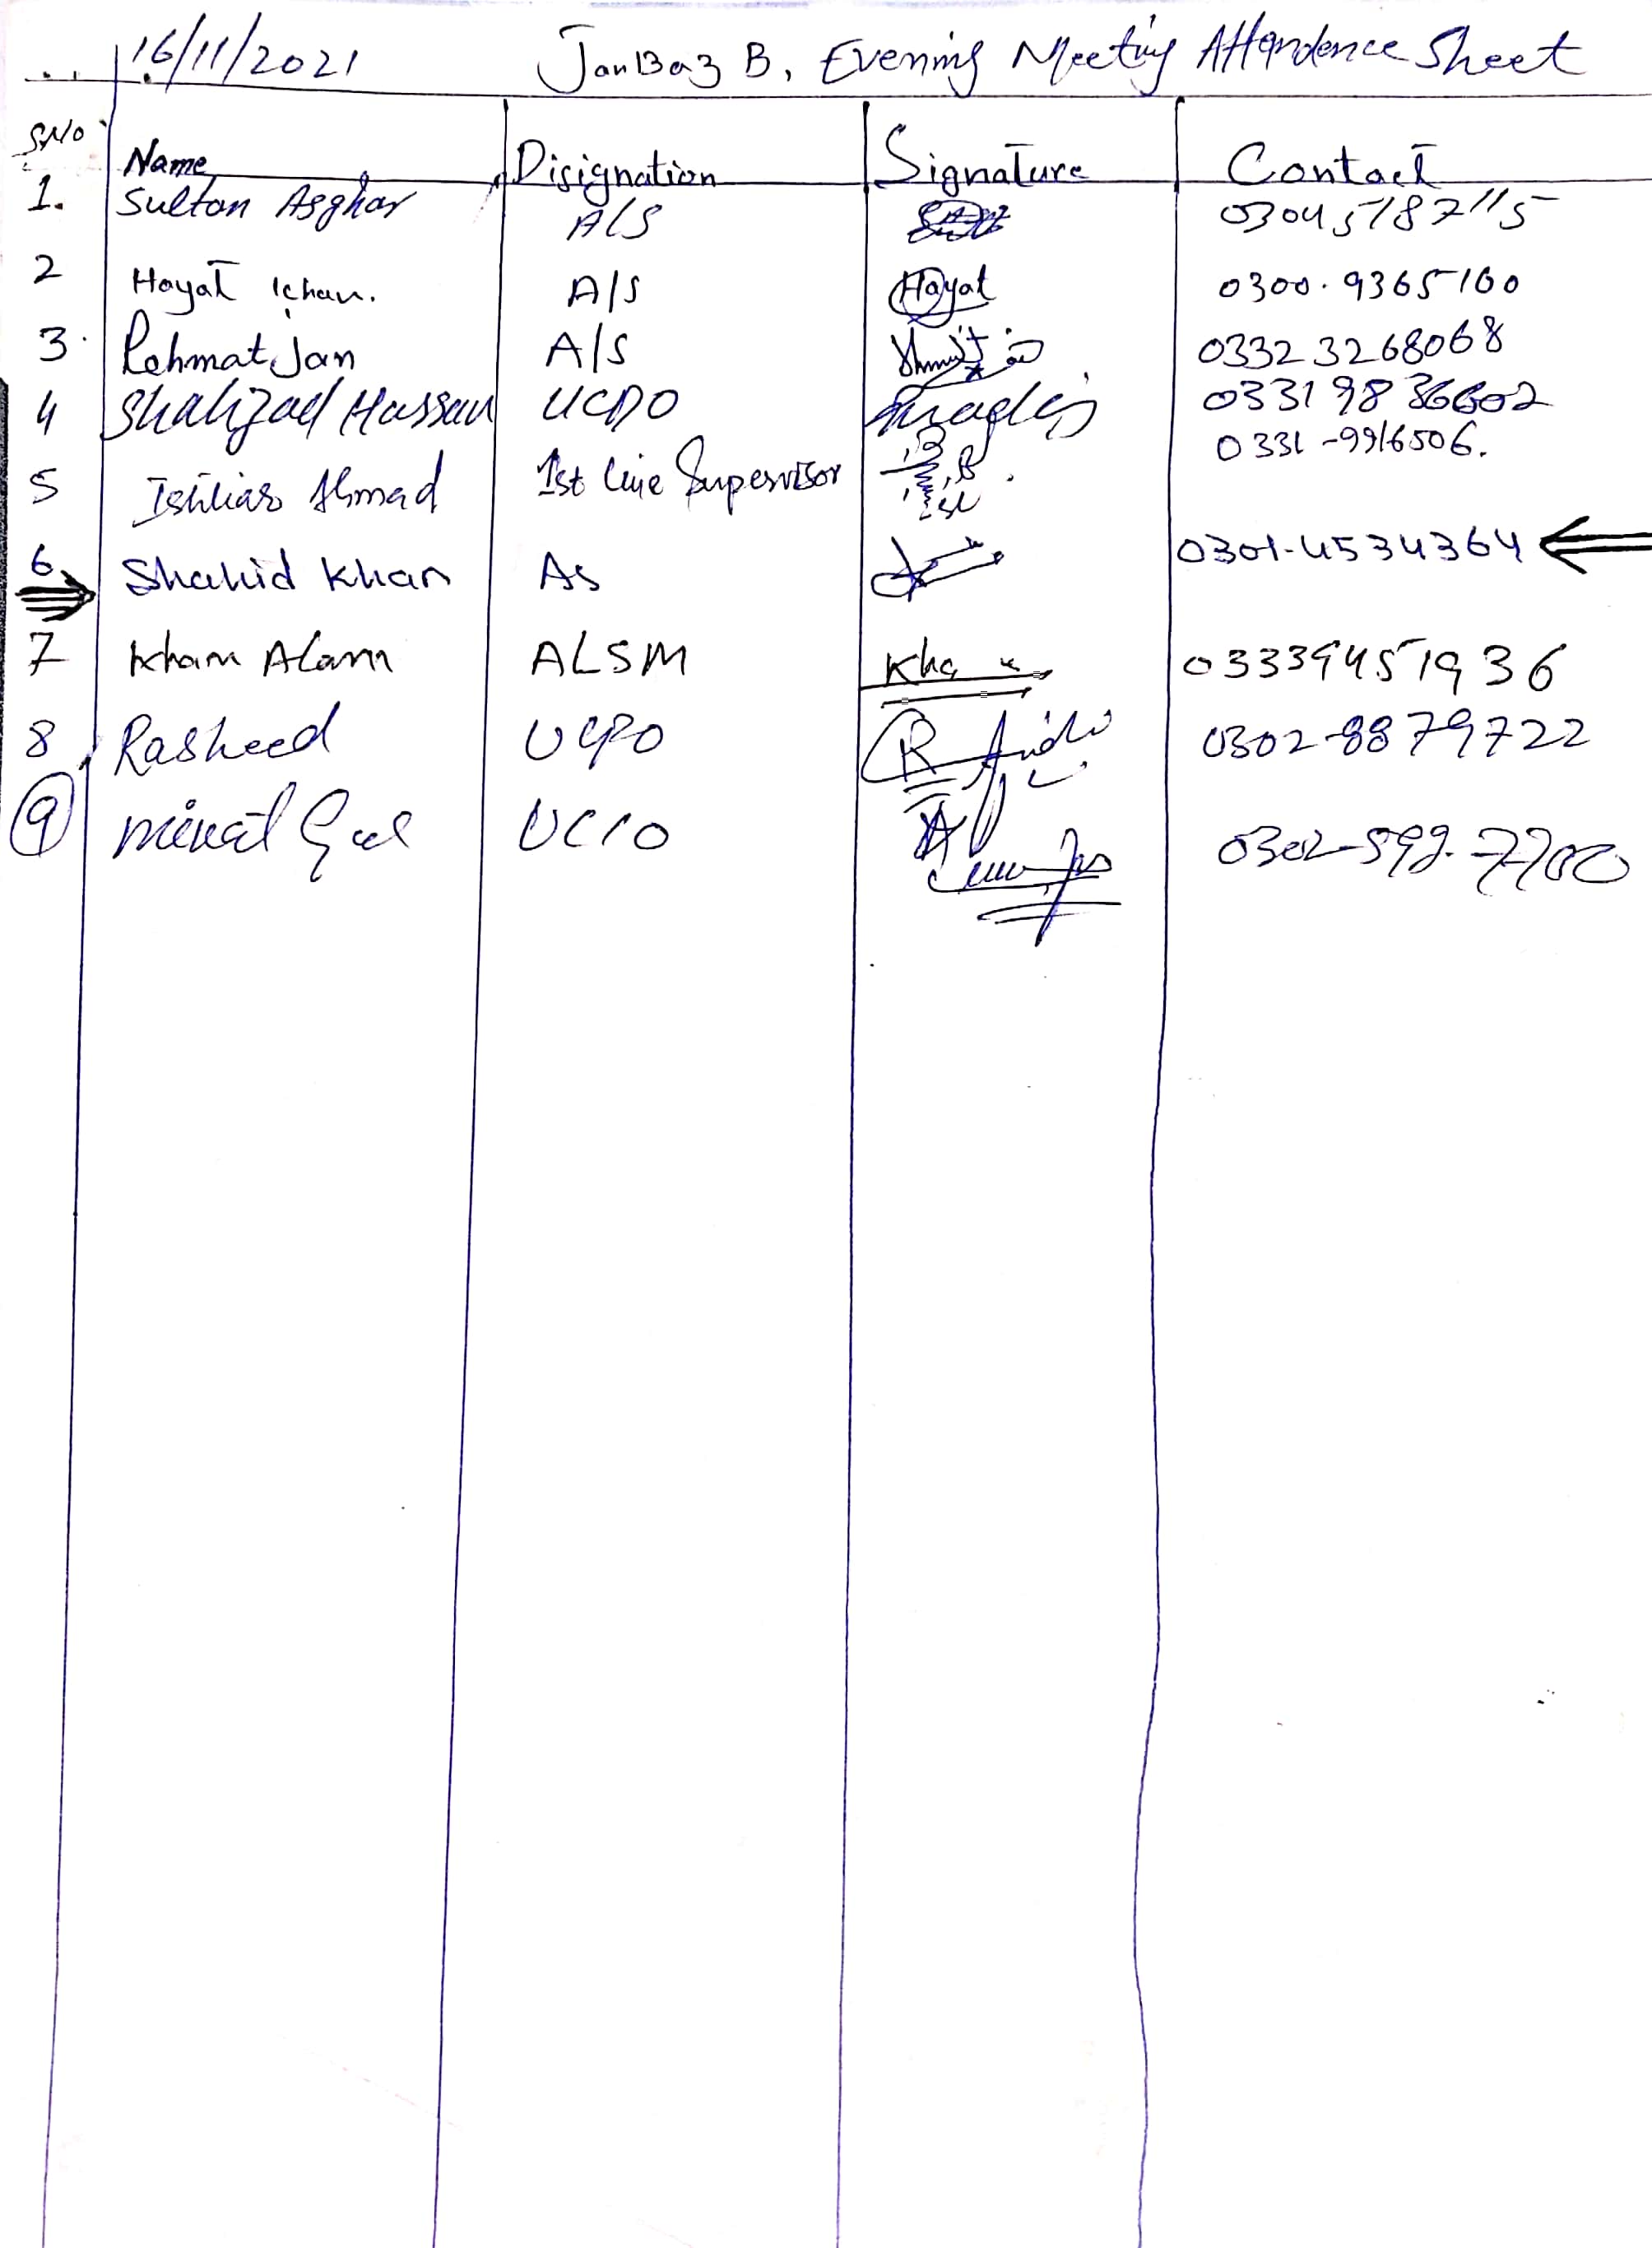 16/11/2021 JanBaz B. Evening Meeting Attendence Sheet
S.No Name Disignation Signature Contact
1. Sultan Asghar A/S 03045187115
2 Hayat Khan. A/S Hayat 0300.9365160
3. Rehmat Jan A/S 03323268068
4 Shahzad Hassan UCPO
5 Ahmad 1st line Supervisor 0331-9916506.
6 Shahid Khan AS 0301-4534364
7 Kham Alam ALSM Kha 03339451936
8 Rasheed UCPO 0302-8879722
9 Gul UCPO